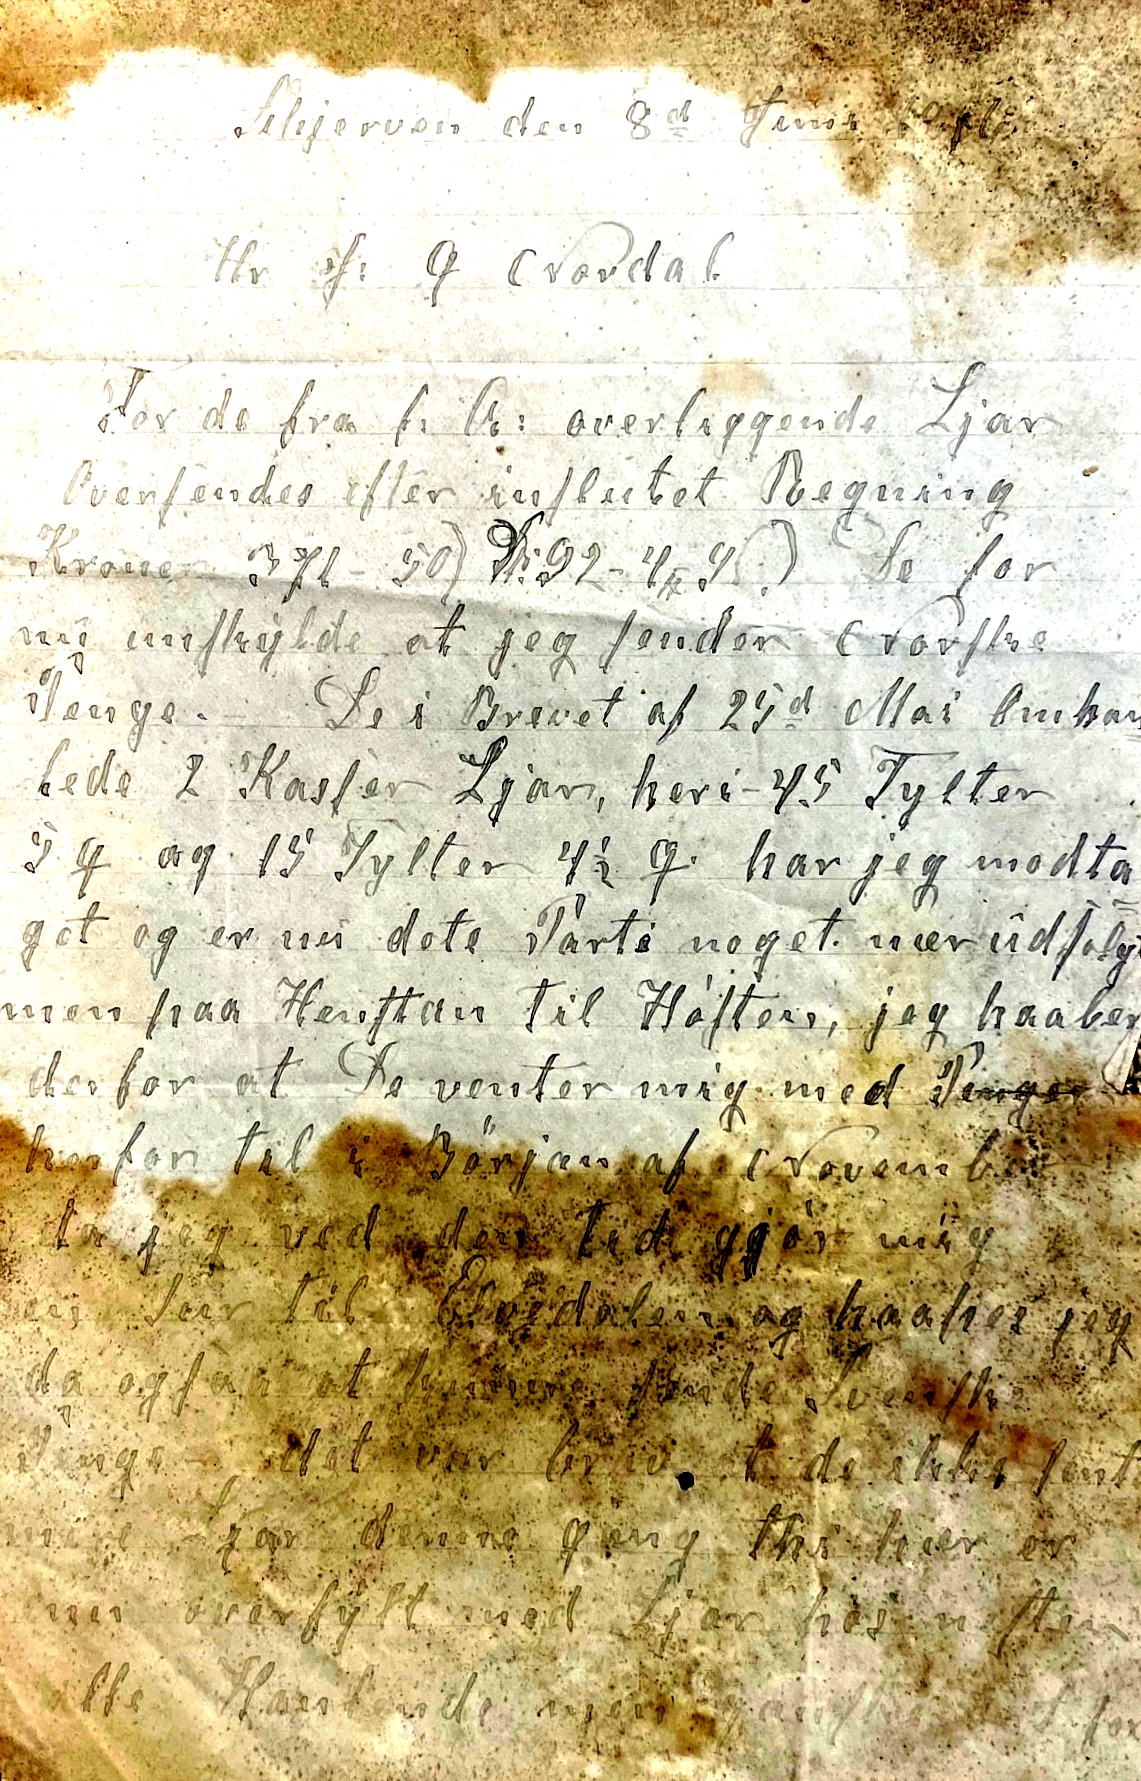 Skjerven den 8d Juni
Hr P: Q Nordal
For de fra f: A: overliggende Ljar
Oversendes efter insluttet Regning
Kroner 371-50) De for
nŭ unskylde at jeg sender Norske
Penge. - De i Brevet af 25d Mai Omhan
lede 2 Kasser Ljar, heri - 45 Tylter
5 q og 15 Tylter 4½ q. har jeg modta
get og er nu dete Parti noget nær ŭdsolgt
men paa Henstan til Høsten, jeg haaber
derfor at De venter mig med Penger
herfor til i Början af November
da jeg ved den tid gjør mig
en Tur til Elvedalen og haaber jeg
da ogsaa at kunne sende Svenske
Penge - det var at de ikke sent
mere Ljar denne gang thi hær er
overfylt med Ljar hos næsten
alle Hanlende men